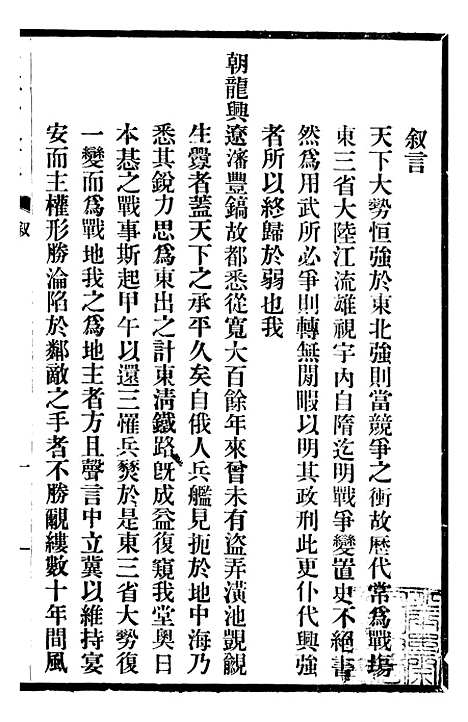 叙言
天下大勢恒強於東北強則當競爭之衝故歷代常爲戰塲
東三省大陸江流雄視宇內自隋迄明戰爭變置史不絕書
然爲用武所必爭則轉無閒暇以明其政刑此更仆代興強
者所以終歸於弱也我
朝龍興遼瀋豐鎬故都悉從寬大百餘年來曾未有盜弄潢池覬覦
生釁者蓋天下之承平久矣自俄人兵艦見扼於地中海乃
悉其銳力思爲東出之計東清鐵路旣成益復窺我堂奧日
本碁之戰事斯起甲午以還三罹兵燹於是東三省大勢復
一變而爲戰地我之爲地主者方且聲言中立冀以維持宴
安而主權形勝淪陷於鄰敵之手者不勝覼縷數十年間風
叙
一